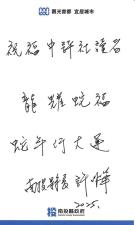 觀光首都 宜居城市
祝福中評社讀者
龍耀蛇福
蛇年行大運
南投縣長 許淑華
2025.
南投縣政府